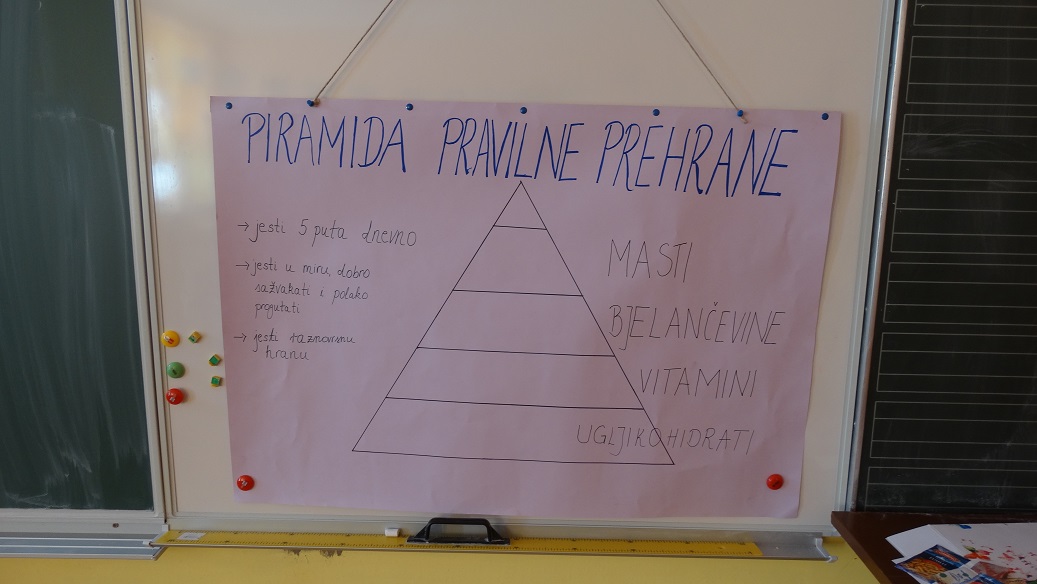 PIRAMIDA PRAVILNE PREHRANE
→ jesti 5 puta dnevno
→ jesti u miru, dobro
sažvakati i polako
progutati
→ jesti raznovrsnu
hranu
MASTI
BJELANČEVINE
VITAMINI
UGLJIKOHIDRATI